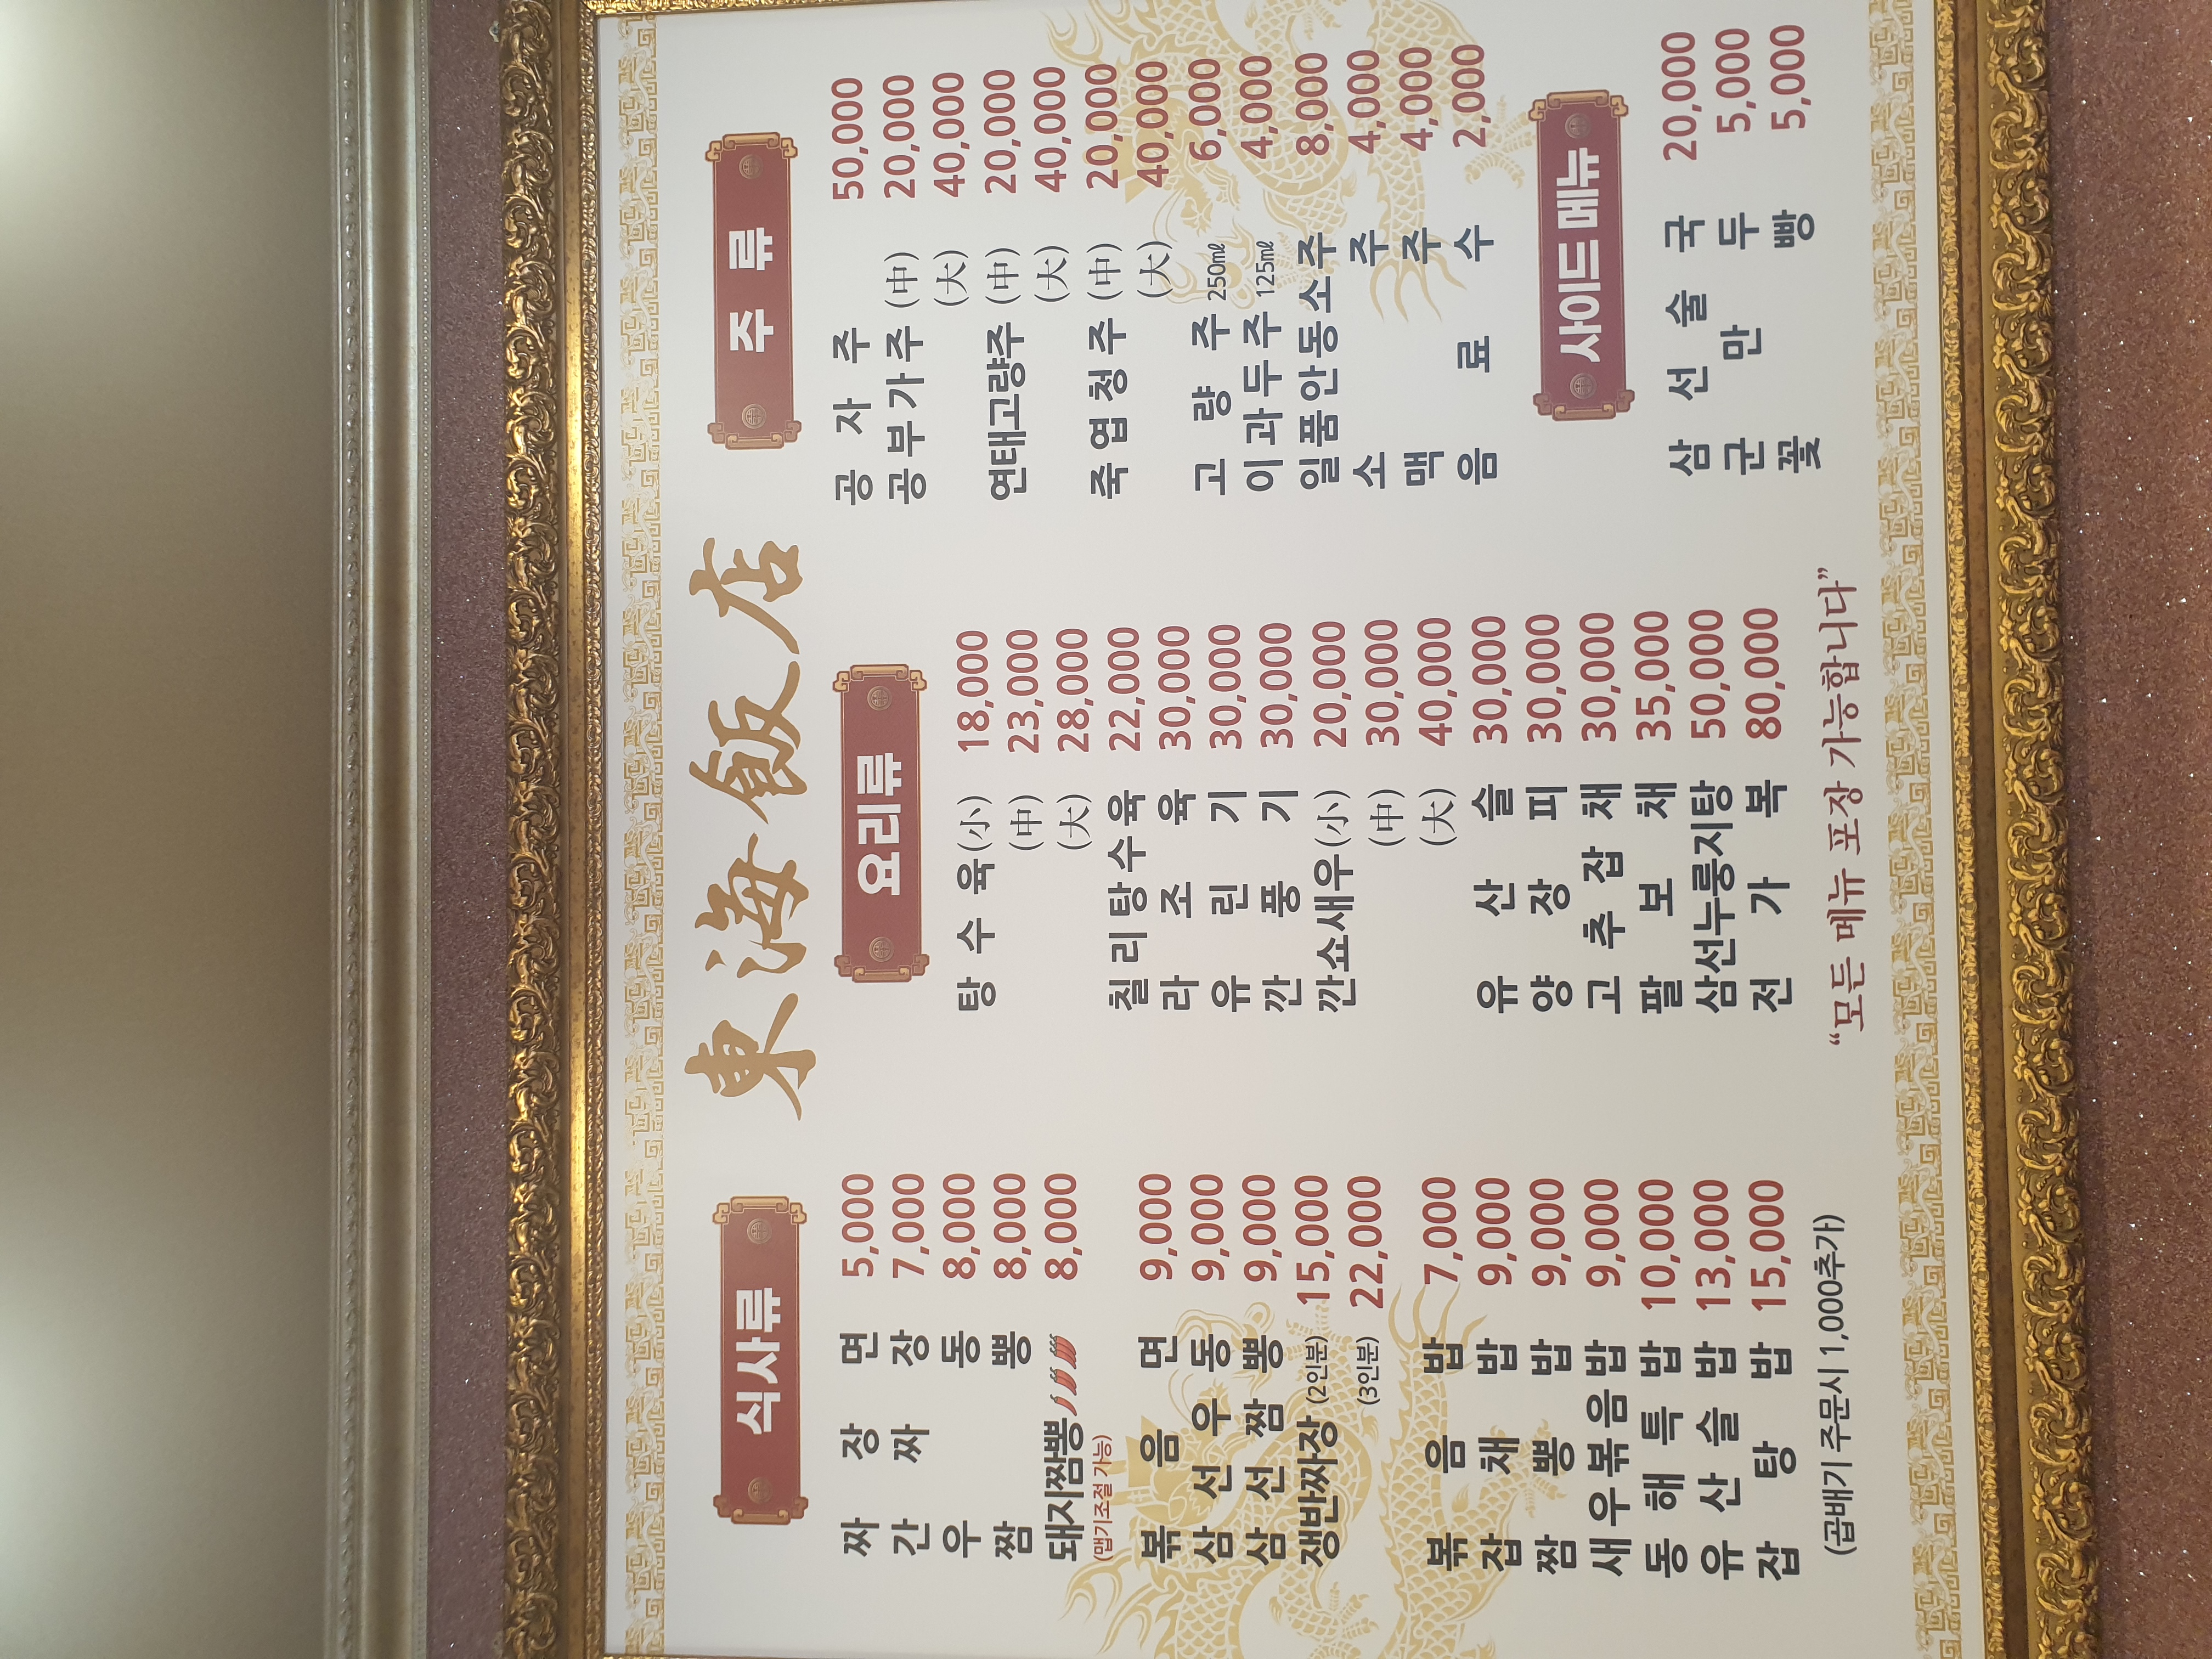 東海飯店
식사류
짜장면 5,000
간짜장 7,000
우동 8,000
짬뽕 8,000
돼지짬뽕 8,000
(맵기조절 가능)
볶음면 9,000
삼선우동 9,000
삼선짬뽕 9,000
쟁반짜장 (2인분) 15,000
(3인분) 22,000
볶음밥 7,000
잡채밥 9,000
짬뽕밥 9,000
새우볶음밥 9,000
동해특밥 10,000
유산슬밥 13,000
잡탕밥 15,000
(곱배기 주문시 1,000추가)
요리류
탕수육(小) 18,000
(中) 23,000
(大) 28,000
칠리탕수육 22,000
라조육 30,000
유린기 30,000
깐풍기 30,000
깐쇼새우(小) 20,000
(中) 30,000
(大) 40,000
유산슬 30,000
양장피 30,000
고추잡채 30,000
팔보채 35,000
삼선누룽지탕 50,000
전가복 80,000
“모든 메뉴 포장 가능합니다”
주류
공자주 50,000
공부가주 (中) 20,000
(大) 40,000
연태고량주 (中) 20,000
(大) 40,000
죽엽청주 (中) 20,000
(大) 40,000
고량주 250㎖ 6,000
이과두주 125㎖ 4,000
일품안동소주 8,000
소주 4,000
맥주 4,000
음료수 2,000
사이드메뉴
삼선술국 20,000
군만두 5,000
꽃빵 5,000